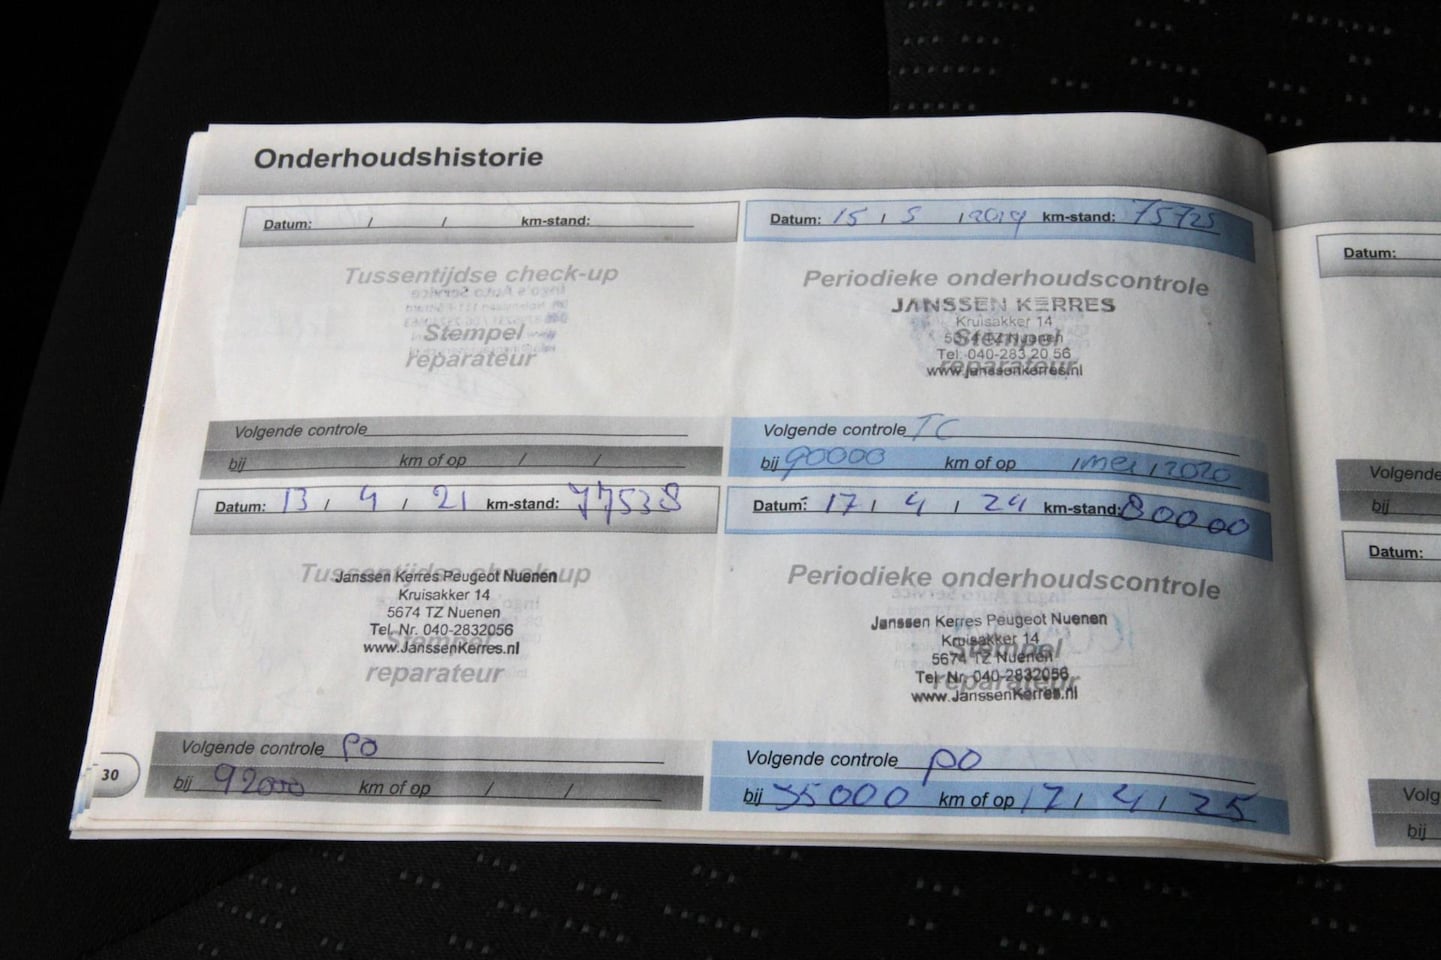 Onderhoudshistorie
Datum: / / km-stand:
Tussentijdse check-up
Stempel
reparateur
Volgende controle
bij km of op / /
Datum: 15 / 5 / 2019 km-stand: 75725
Periodieke onderhoudscontrole
JANSSEN KERRES
Kruisakker 14
5674 TZ Nuenen
Stempel
Tel. 040-283 20 56
reparateur
www.janssenkerres.nl
Volgende controle TC
bij 90000 km of op / mei / 2020
Datum: 13 / 4 / 21 km-stand: 77538
Tussentijdse check-up
Janssen Kerres Peugeot Nuenen
Kruisakker 14
5674 TZ Nuenen
Tel. Nr. 040-2832056
Stempel
www.JanssenKerres.nl
reparateur
Volgende controle PO
bij 92000 km of op / /
Datum: 17 / 4 / 24 km-stand: 80000
Periodieke onderhoudscontrole
Janssen Kerres Peugeot Nuenen
Kruisakker 14
Stempel
5674 TZ Nuenen
Tel. Nr. 040-2832056
reparateur
www.JanssenKerres.nl
Volgende controle PO
bij 000 km of op 17 / 4 / 25
30
Datum:
Volgende
bij
Datum:
Volg
bij